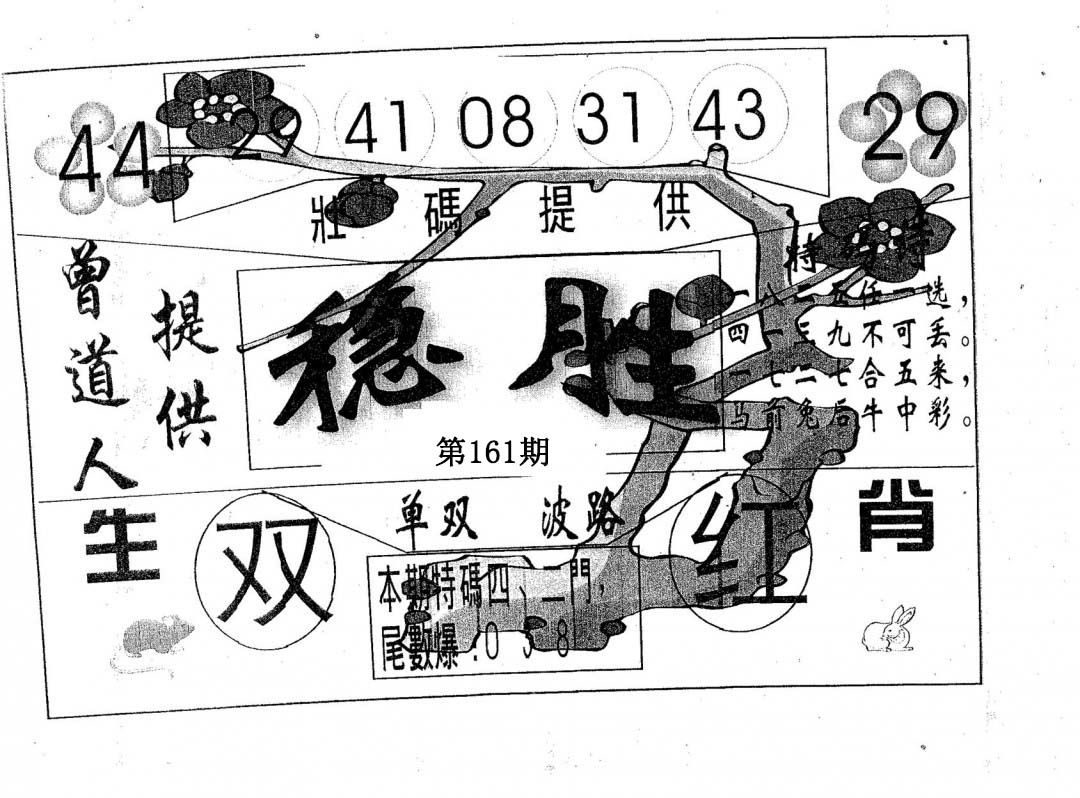 44 29 41 08 31 43 29
壯碼提供
曾道人
提供
稳胜
第161期
特码诗
一八二五任一选，
四一三九不可丢。
一七二七合五来，
马前兔后牛中彩。
生肖
单双 波路
双 红
本期特碼四、二門，
尾數爆：0 3 8